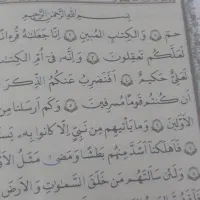 بِسْمِ اللَّهِ الرَّحْمَٰنِ الرَّحِيمِ
حمٓ ۝ وَالْكِتَابِ الْمُبِينِ ۝ إِنَّا جَعَلْنَاهُ قُرْءَانًا
لَعَلَّكُمْ تَعْقِلُونَ ۝ وَإِنَّهُ فِي أُمِّ الْكِتَابِ
لَعَلِيٌّ حَكِيمٌ ۝ أَفَنَضْرِبُ عَنكُمُ الذِّكْرَ
أَن كُنتُمْ قَوْمًا مُّسْرِفِينَ ۝ وَكَمْ أَرْسَلْنَا مِن
الْأَوَّلِينَ ۝ وَمَا يَأْتِيهِم مِّن نَّبِيٍّ إِلَّا كَانُوا بِهِ
فَأَهْلَكْنَا أَشَدَّ مِنْهُم بَطْشًا وَمَضَىٰ مَثَلُ
وَلَئِن سَأَلْتَهُم مَّنْ خَلَقَ السَّمَٰوَٰتِ وَالْأَرْضَ